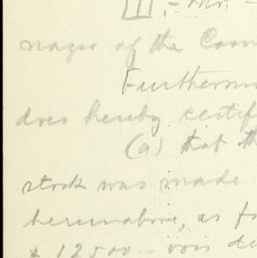 III.- Mr.
nager of the Com
Furthermo
does hereby certif
(a) that th
stock was made
hereinabove, as fo
$12500.- was de